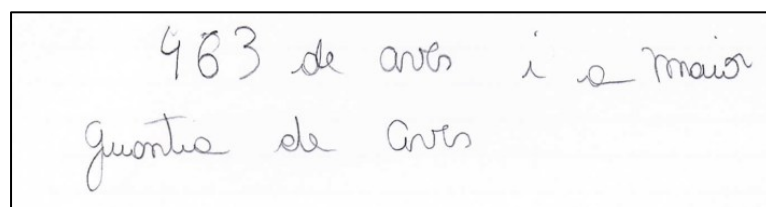 463 de aves i a maior
guantia de aves